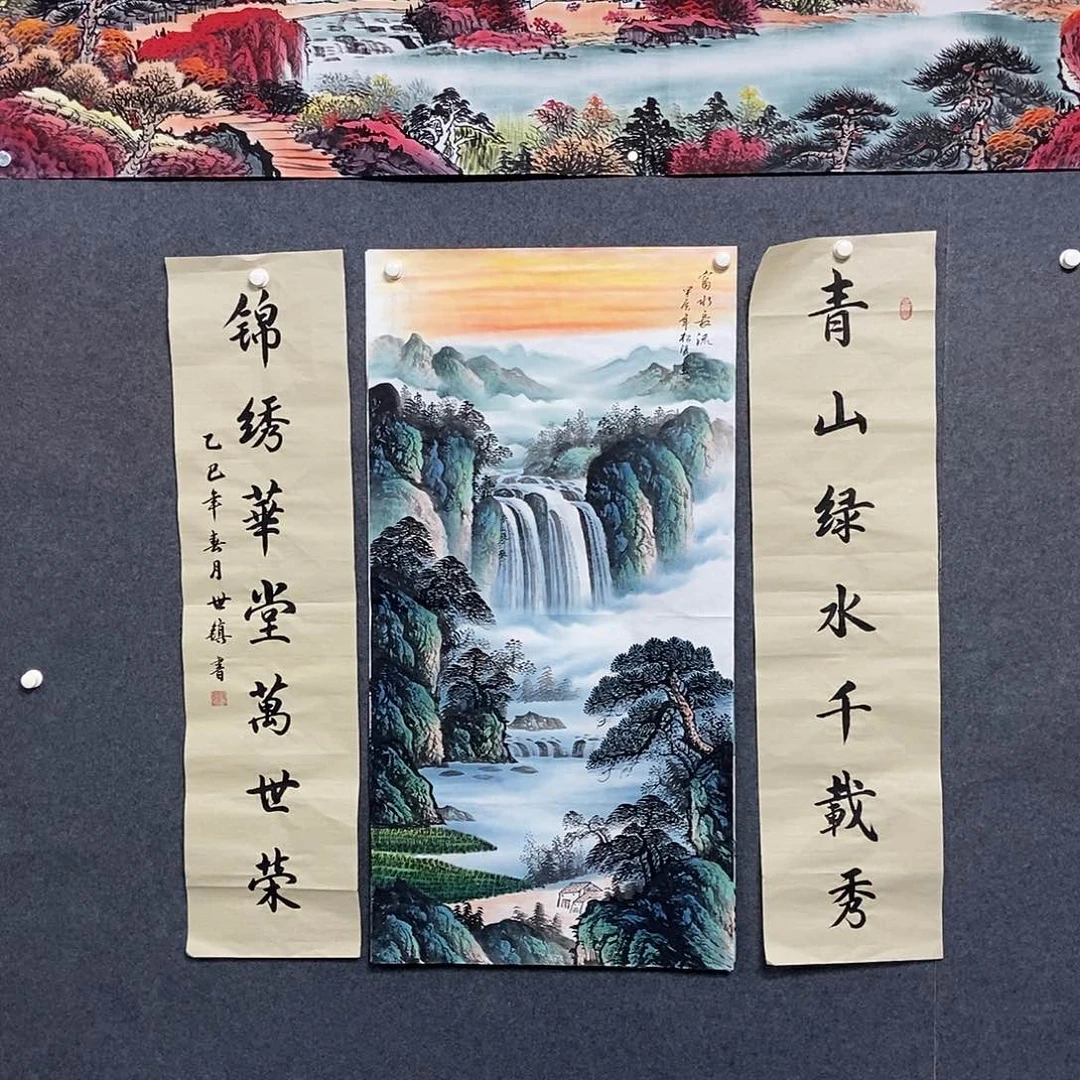 青山绿水千載秀
富水長流
甲辰年松涛
锦绣華堂萬世荣
乙巳年春月世镇書